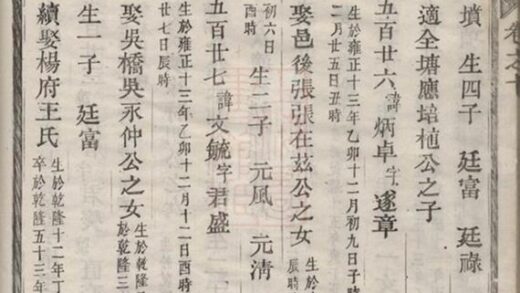 卷之十
墳 生四子 廷富 廷祿
適全塘應培植公之子
五百廿六 諱 炳卓 字 遂章
生於雍正十三年乙卯十二月初九日子時
二月廿五日丑時
娶邑後張張在茲公之女 生於
辰時
初六日
酉時
生二子 元風 元清
五百廿七 諱 文毓 字 君盛
生於雍正十三年乙卯十二月十二日酉時
廿七日辰時
娶吳橋吳永仲公之女 生於乾隆
於乾隆三
生一子 廷富
續娶楊府王氏 生於乾隆十二年丁
卒於乾隆五十三年